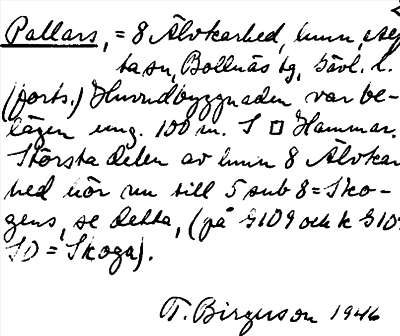 Pallars, = 8 Älvkarhed, hmn, Seg-
sta sn, Bollnäs tg, Gävl. l.
(forts.) Huvudbyggnaden var be-
lägen ung. 100 m. S □ Hammar.
Största delen av hmn 8 Älvkar-
hed hör nu till 5 sub 8 = Sko-
gens, se detta, (på G109 och k G109
SO = Skoga).
T. Birgerson 1946